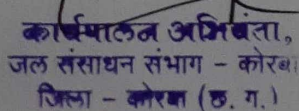 कार्यपालन अभियंता,
जल संसाधन संभाग - कोरबा
जिला - कोरबा (छ. ग.)